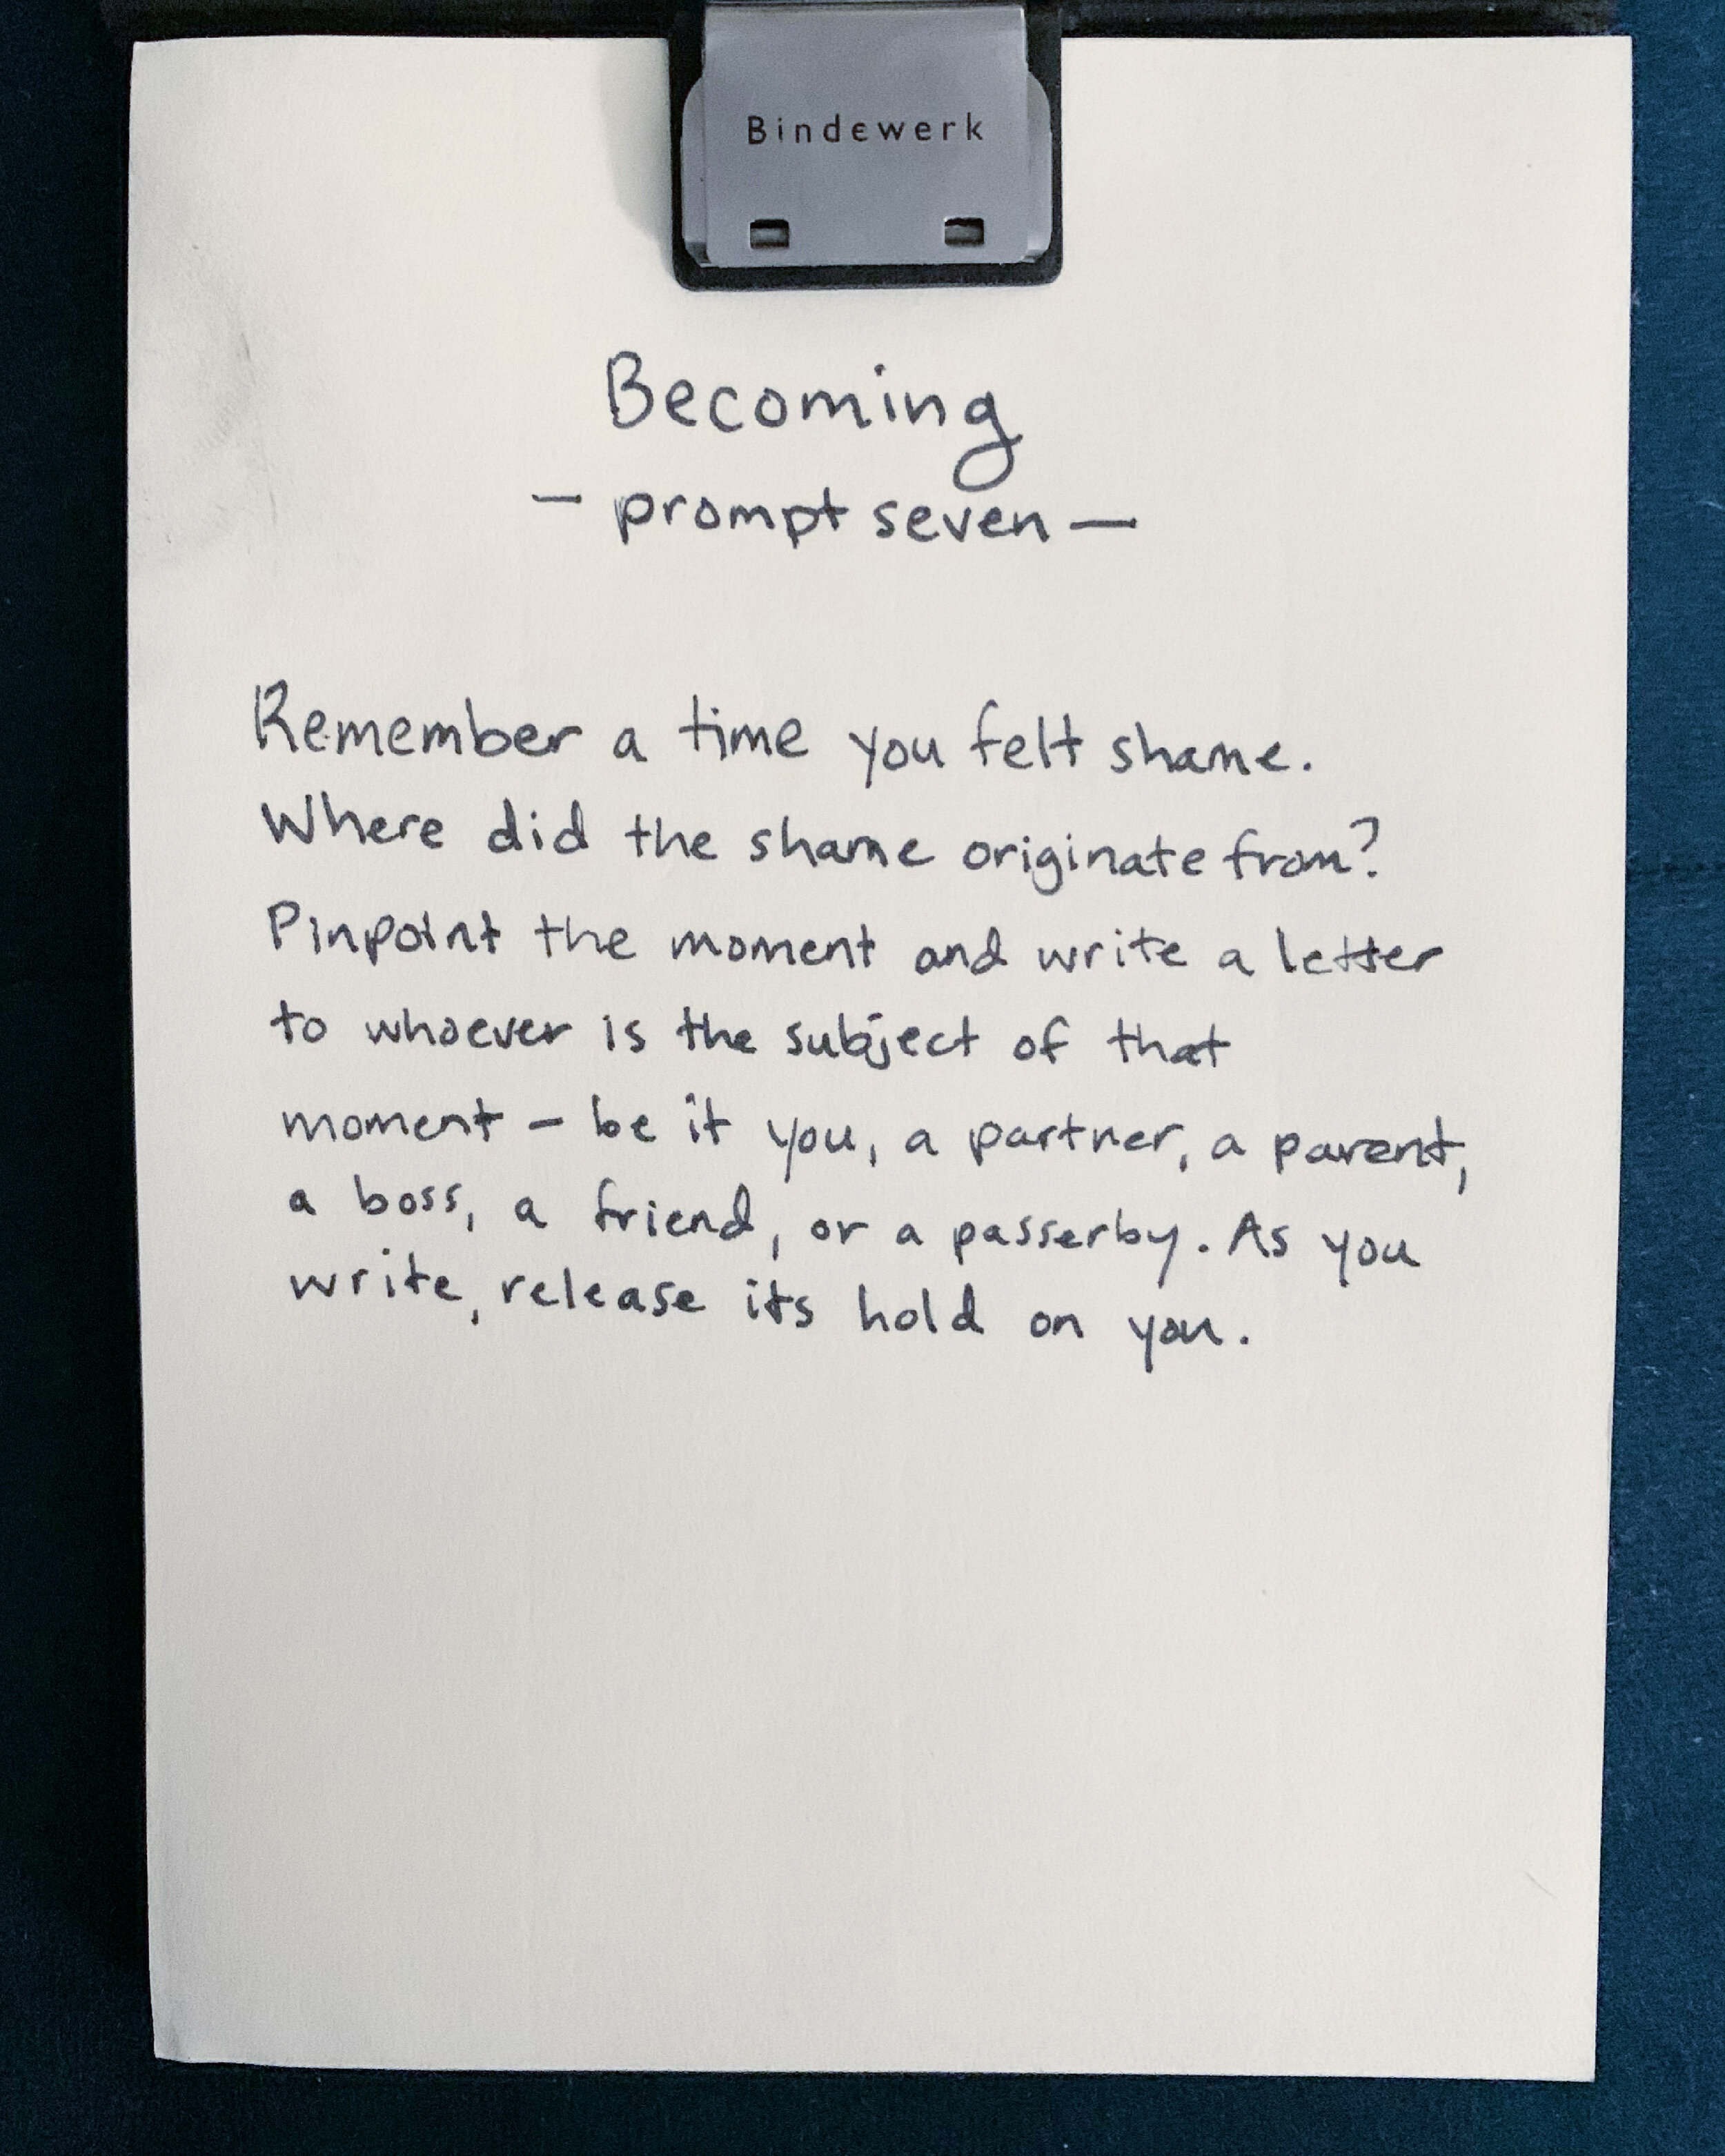 Bindewerk
Becoming
— prompt seven —
Remember a time you felt shame.
Where did the shame originate from?
Pinpoint the moment and write a letter
to whoever is the subject of that
moment – be it you, a partner, a parent,
a boss, a friend, or a passerby. As you
write, release its hold on you.